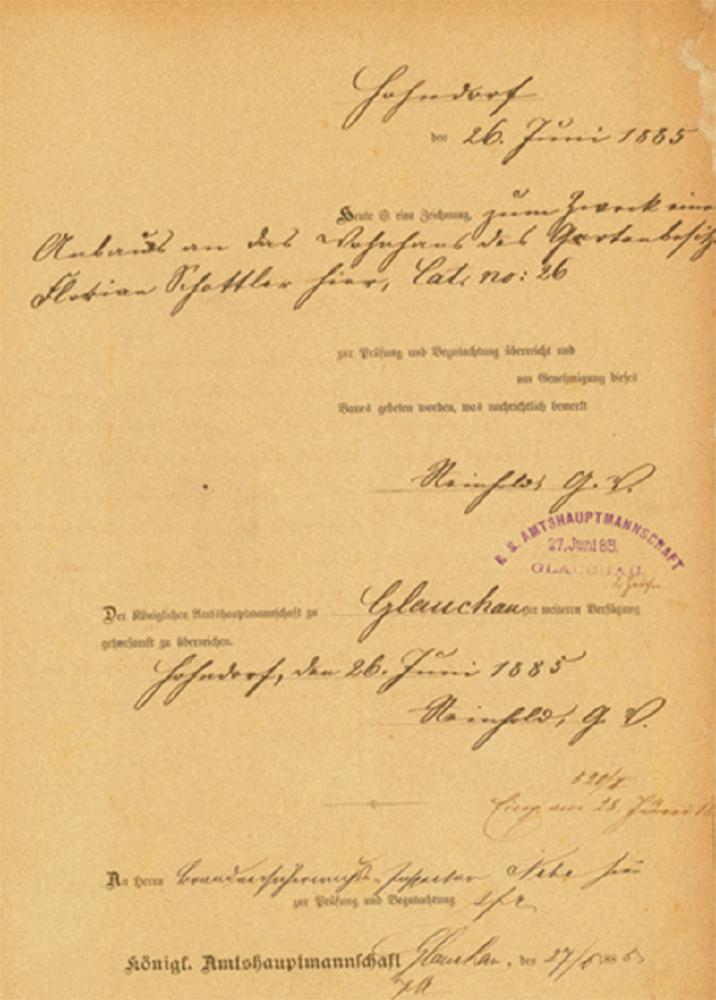 Hohndorf
den 26. Juni 1885
Heute ist eine Zeichnung, zum Zweck eines
Anbaus an das Wohnhaus des Gartenbesitz
Florian Schottler hier, Cat. no: 26
zur Prüfung und Begutachtung überreicht und
um Genehmigung dieses
Baues gebeten worden, was nachrichtlich bemerkt
Reinhold, G. V.
K. S. AMTSHAUPTMANNSCHAFT
27. Juni 85.
GLAUCHAU.
Der Königlichen Amtshauptmannschaft zu Glauchau zur weiteren Verfügung
gehorsamst zu überreichen.
Hohndorf, den 26. Juni 1885
Reinhold, G. V.
Eing. am 28. Juni 18
An Herrn Brandversicherungs-Inspector hier
zur Prüfung und Begutachtung
Königl. Amtshauptmannschaft Glauchau, den 27/6 1885